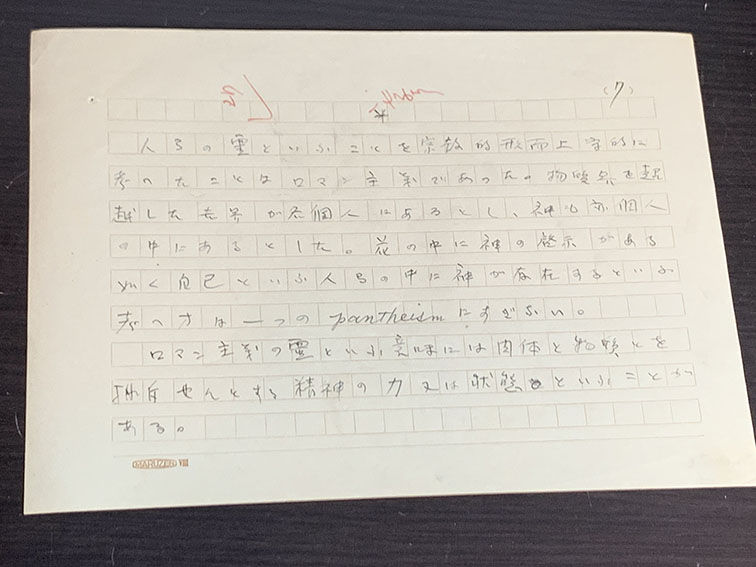 (7)
人間の霊といふことを宗教的形而上学的に
考へたことはロマン主義であった。物質界を超
越した世界が各個人にあるとし、神も亦個人
の中にあるとした。花の中に神の啓示がある
如く自己といふ人間の中に神が存在するといふ
考へ方は一つのpantheismにすぎない。
ロマン主義の霊といふ意味には肉体と物質とを
せんとする精神の力又は状態といふことが
ある。
MARUZEN VIII